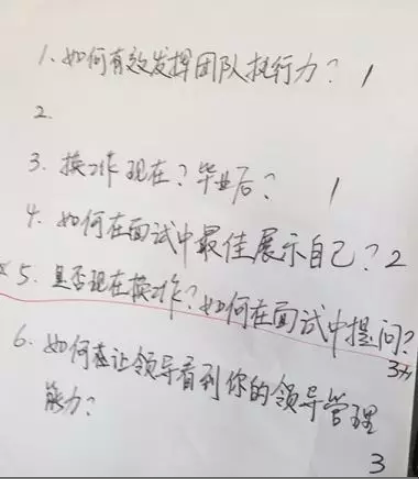 1. 如何有效发挥团队执行力? 1
2.
3. 换工作现在? 毕业后? 1
4. 如何在面试中最佳展示自己? 2
5. 是否现在换工作? 如何在面试中提问?
6. 如何在让领导看到你的领导管理
能力?
3